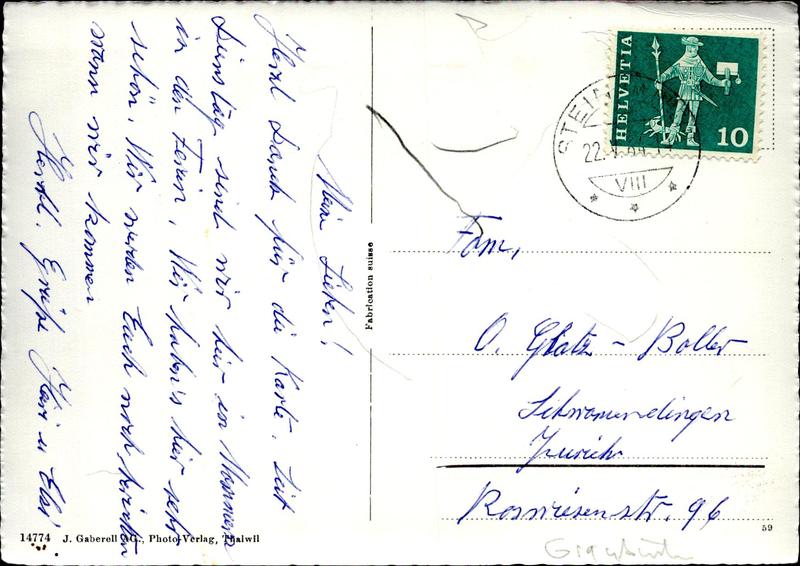 Mein Lieben!
Herzl. Dank für die Karte. Seit
Dinstag sind wir hier in
in den Ferien, Wir haben's hier sehr
schön, Wir werden Euch noch
wann wir kommen
Herzl. Grüße Heiri u Elsi
HELVETIA
10
STEIN
22.
VIII
Fam,
O. Glatz - Boller
Schwamendingen
Zürich
Roswiesenstr. 96
Fabrication suisse
14774 J. Gaberell AG., Photo-Verlag, Thalwil
59